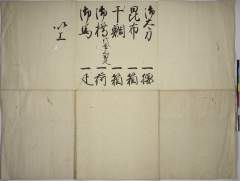 御太刀 一腰
昆布 一箱
干鯛 一箱
御樽 一荷
御馬 一疋
以上